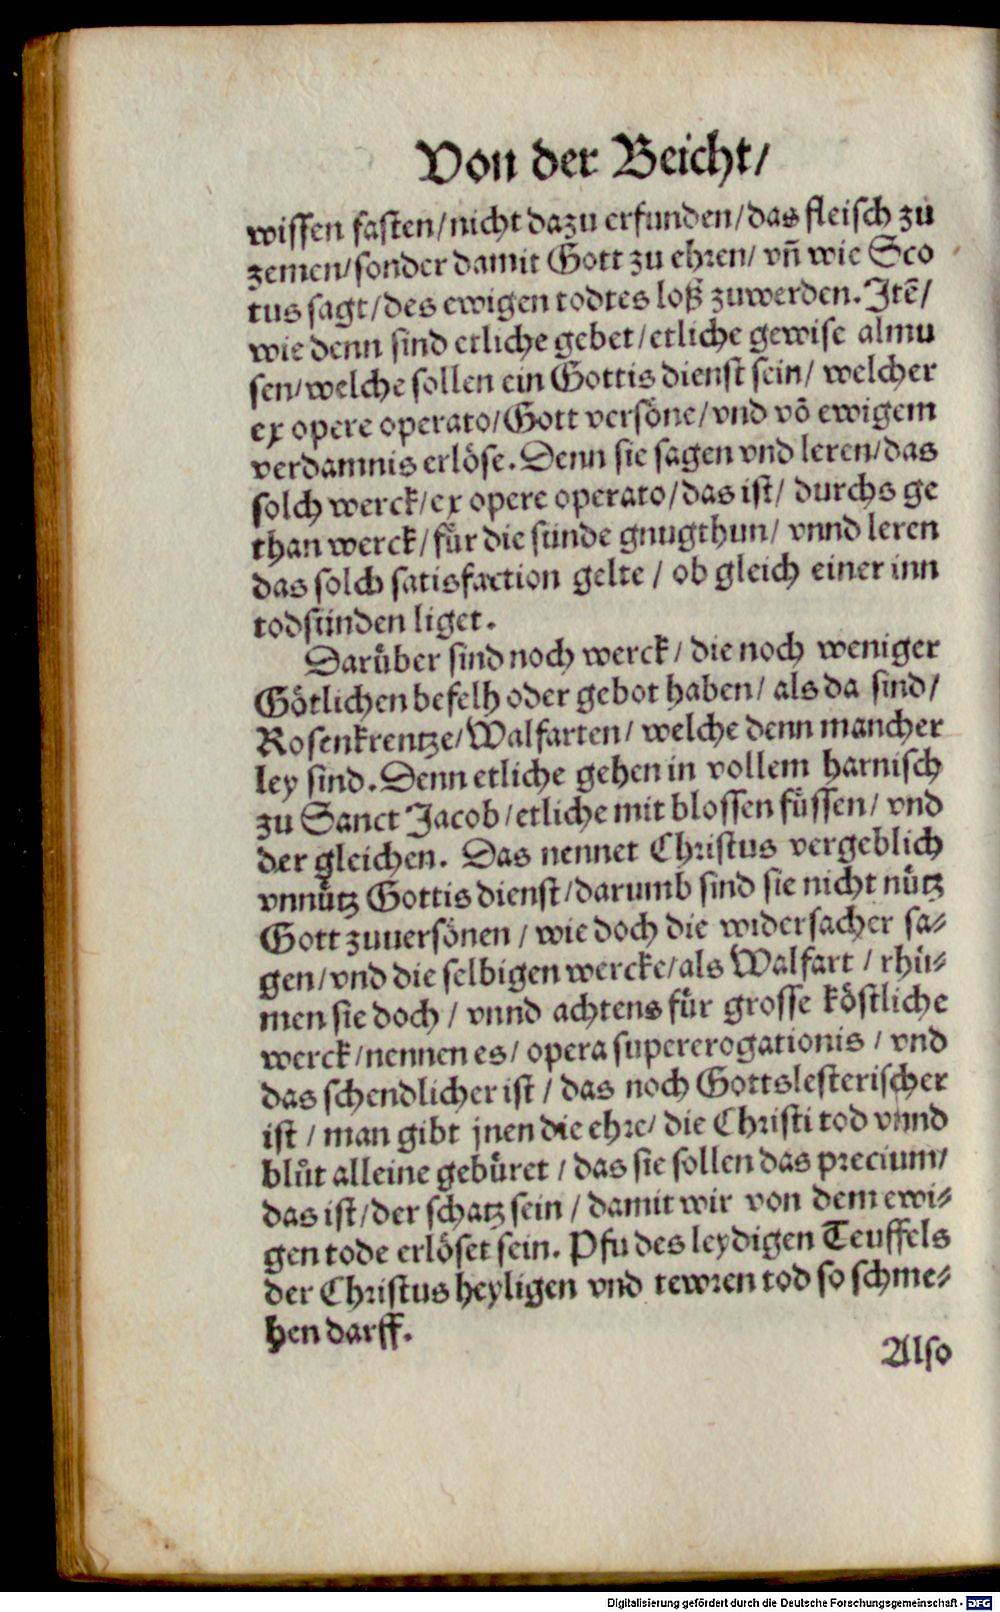 Von der Beicht/
wissen fasten/nicht dazu erfunden/das fleisch zu
zemen/sonder damit Gott zu ehren/ vn̄ wie Sco
tus sagt/des ewigen todtes loß zuwerden. Itē/
wie denn sind etliche gebet/etliche gewise almu
sen/welche sollen ein Gottis dienst sein/ welcher
ex opere operato/Gott versöne/vnd vō ewigem
verdamnis erlöse. Denn sie sagen vnd leren/das
solch werck/ex opere operato/das ist/ durchs ge
than werck/für die sünde gnugthun/ vnnd leren
das solch satisfaction gelte / ob gleich einer inn
todsünden liget.
Darüber sind noch werck/ die noch weniger
Götlichen befelh oder gebot haben/ als da sind/
Rosenkrentze/Walfarten/ welche denn mancher
ley sind. Denn etliche gehen in vollem harnisch
zu Sanct Jacob/etliche mit blossen füssen/ vnd
der gleichen. Das nennet Christus vergeblich
vnnütz Gottis dienst/darumb sind sie nicht nütz
Gott zuuersönen / wie doch die widersacher sa⸗
gen/vnd die selbigen wercke/als Walfart / rhü⸗
men sie doch / vnnd achtens für grosse köstliche
werck/nennen es/ opera supererogationis / vnd
das schendlicher ist / das noch Gottslesterischer
ist / man gibt jnen die ehre/ die Christi tod vnnd
blůt alleine gebüret / das sie sollen das precium/
das ist/der schatz sein / damit wir von dem ewi⸗
gen tode erlöset sein. Pfu des leydigen Teuffels
der Christus heyligen vnd tewren tod so schme⸗
hen darff.
Also
Digitalisierung gefördert durch die Deutsche Forschungsgemeinschaft - DFG